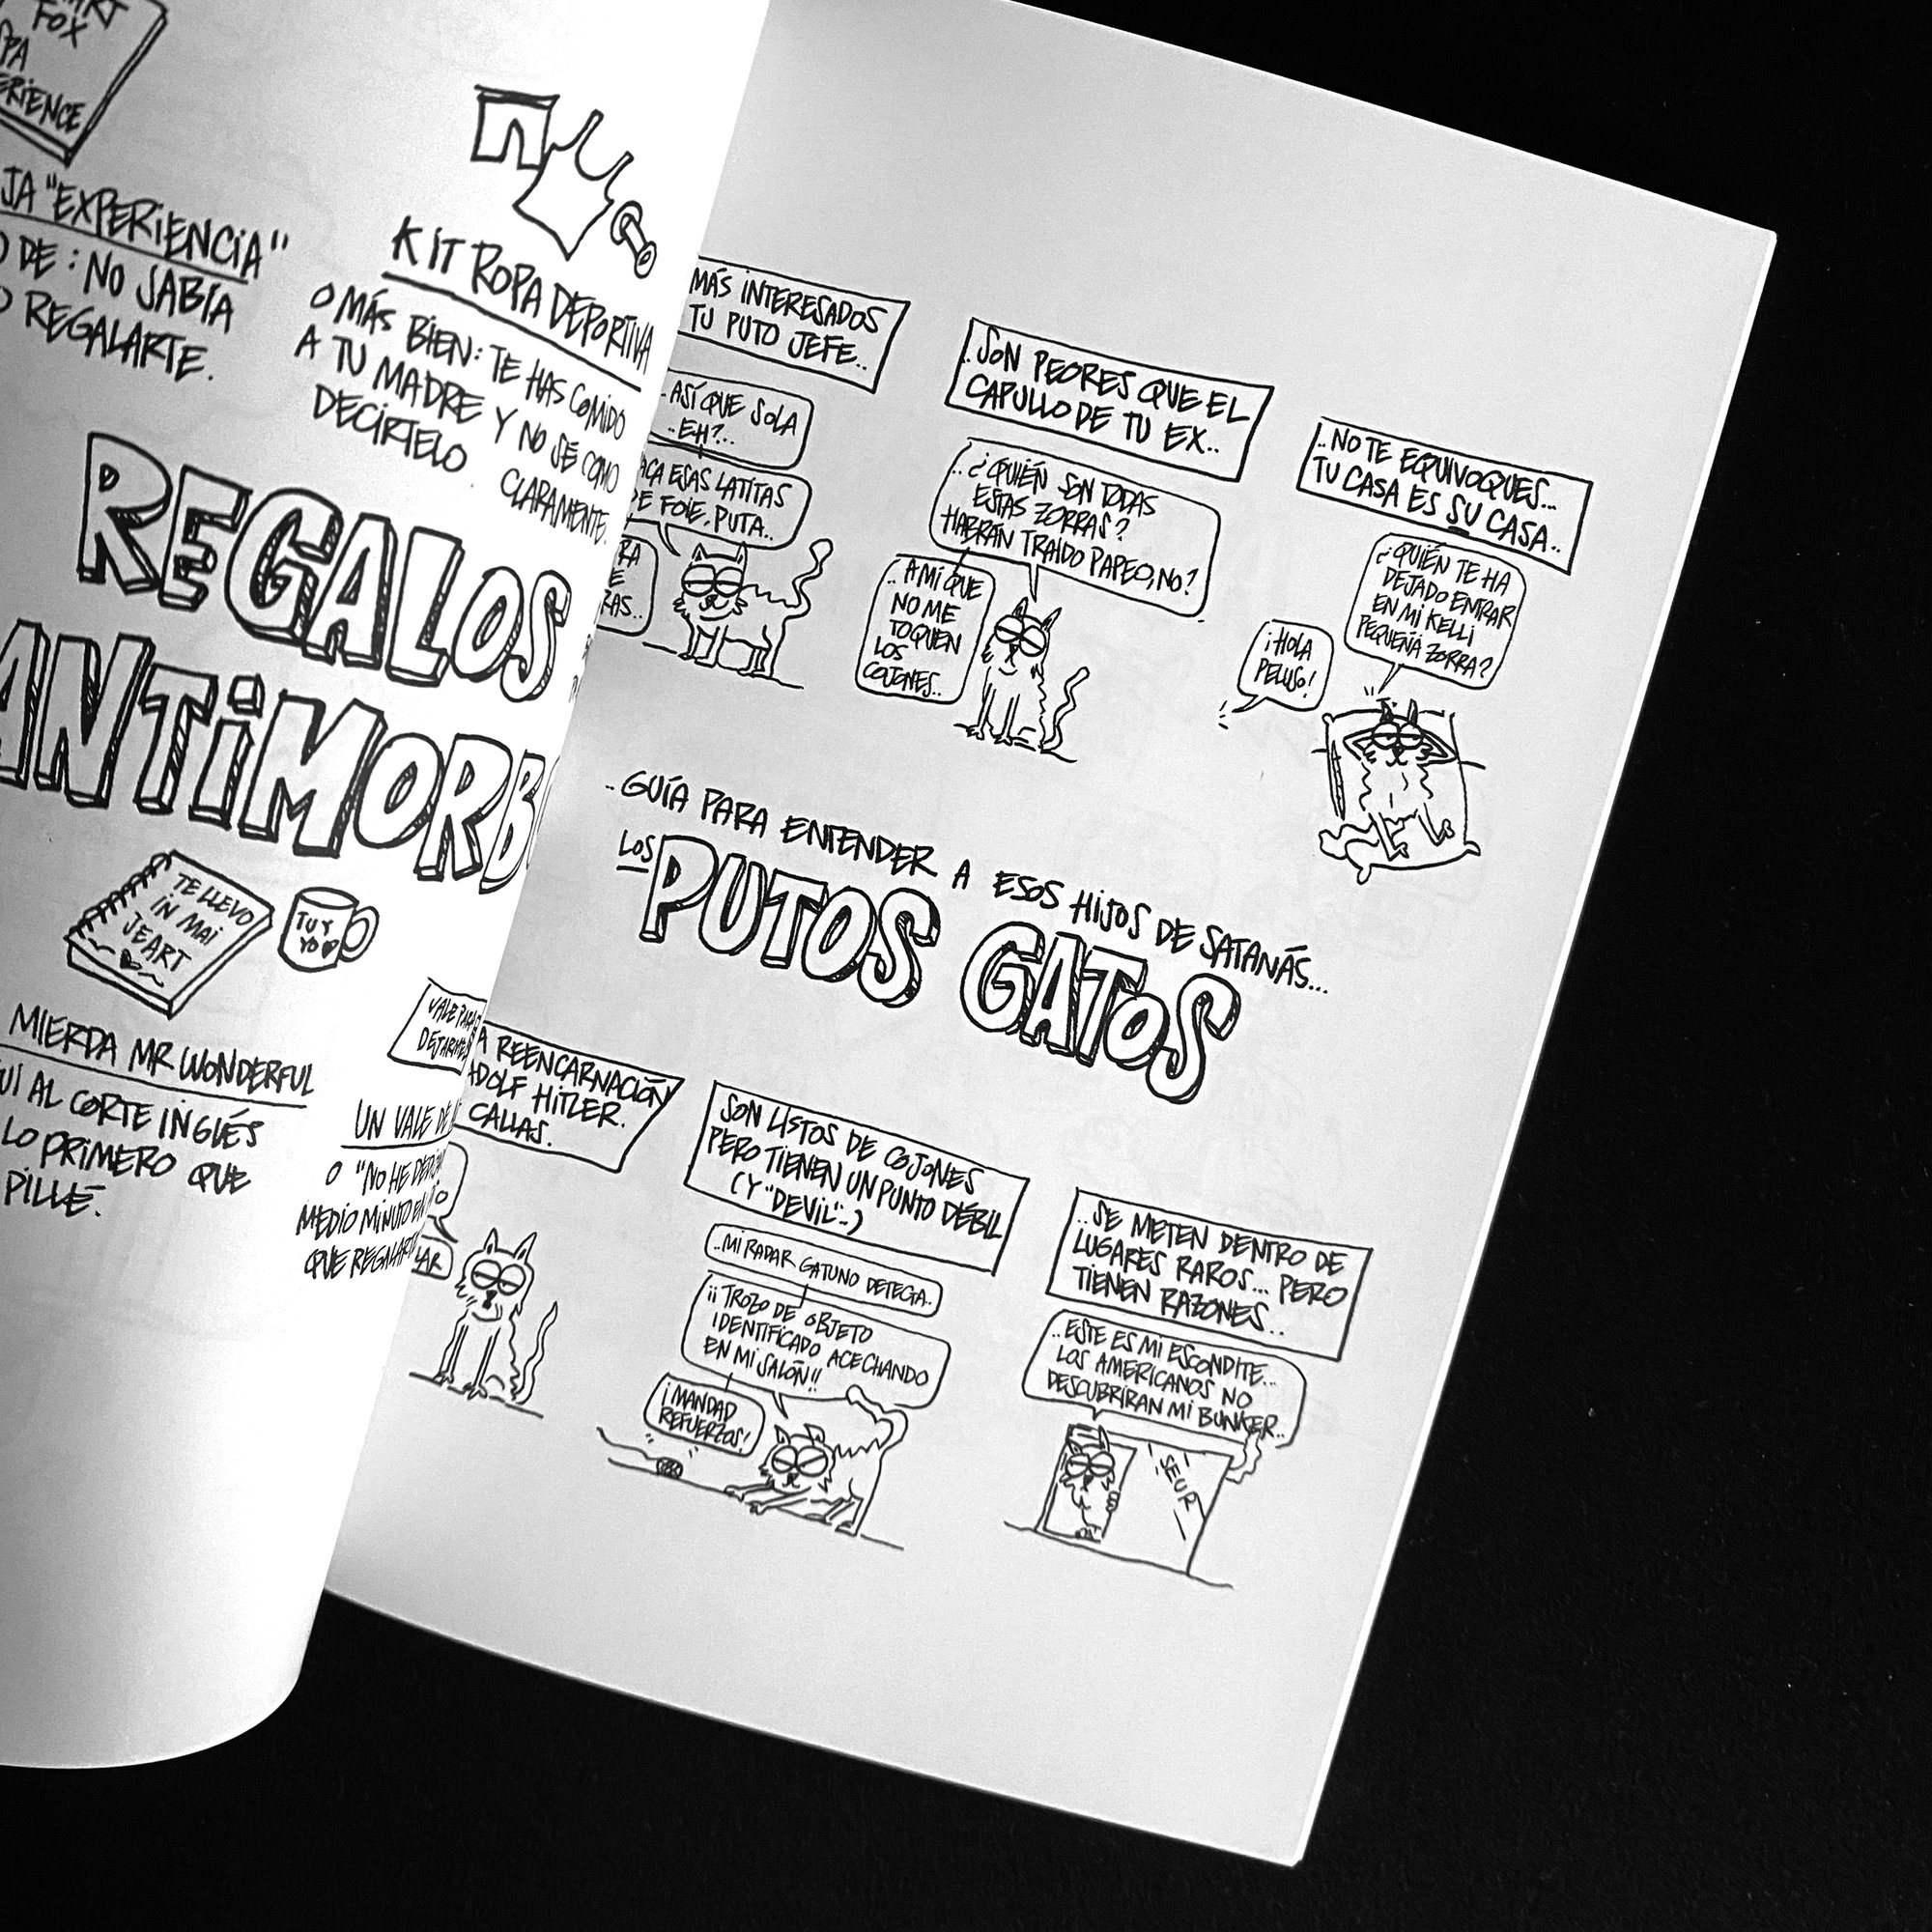 FOX
SPA
JA "EXPERIENCIA"
O DE: NO SABÍA
REGALARTE.
KIT ROPA DEPORTIVA
O MÁS BIEN: TE HAS COMIDO
A TU MADRE Y NO SE COMO
DECIRTELO
CLARAMENTE.
REGALOS
ANTIMORB
TE LLEVO
IN MAI
JEART
TU Y
YO
MIERDA MR WONDERFUL
UÍ AL CORTE INGLÉS
LO PRIMERO QUE
PILLÉ.
VALE PARA
UN VALE DE
O "NO HE
MEDIO MINUTO EN
QUE REGALARTE
MÁS INTERESADOS
TU PUTO JEFE..
..ASÍ QUE SOLA
..EH?..
ESAS LATITAS
DE FOIE, PUTA..
..SON PEORES QUE EL
CAPULLO DE TU EX..
..¿QUIÉN SON TODAS
ESTAS ZORRAS?
HABRÁN TRAIDO PAPEO, NO?
..A MÍ QUE
NO ME
TOQUEN
LOS
COJONES..
..NO TE EQUIVOQUES...
TU CASA ES SU CASA..
¿QUIÉN TE HA
DEJADO ENTRAR
EN MI KELLI
PEQUEÑA ZORRA?
¡HOLA
PELUSO!
..GUÍA PARA ENTENDER A ESOS HIJOS DE SATANÁS...
LOS PUTOS GATOS
A REENCARNACIÓN
ADOLF HITLER.
CALLAS.
SON LISTOS DE COJONES
PERO TIENEN UN PUNTO DÉBIL
(Y "DEVIL"..)
..MI RADAR GATUNO DETECTA.
¡¡TROZO DE OBJETO
IDENTIFICADO ACECHANDO
EN MI SALÓN!!
¡MANDAD
REFUERZOS!
..SE METEN DENTRO DE
LUGARES RAROS... PERO
TIENEN RAZONES..
..ESTE ES MI ESCONDITE...
LOS AMERICANOS NO
DESCUBRIRAN MI BUNKER..
SEUR